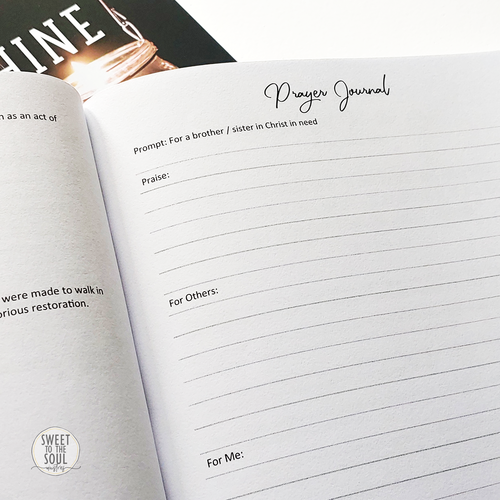 HINE
n as an act of
were made to walk in
orious restoration.
Prayer Journal
Prompt: For a brother / sister in Christ in need
Praise:
For Others:
For Me:
SWEET
TO THE
SOUL
ministries